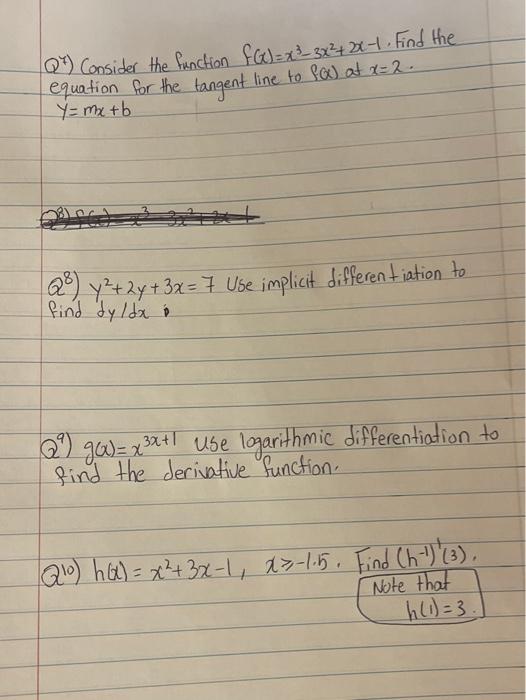 Q7) Consider the function f(x)=x³-3x²+2x-1. Find the
equation for the tangent line to f(x) at x=2.
y=mx+b
Q8) y²+2y+3x=7 Use implicit differentiation to
find dy/dx
Q9) g(x)=x^{3x+1} use logarithmic differentiation to
find the derivative function.
Q10) h(x)=x²+3x-1, x≥-1.5. Find (h⁻¹)'(3).
Note that
h(1)=3.